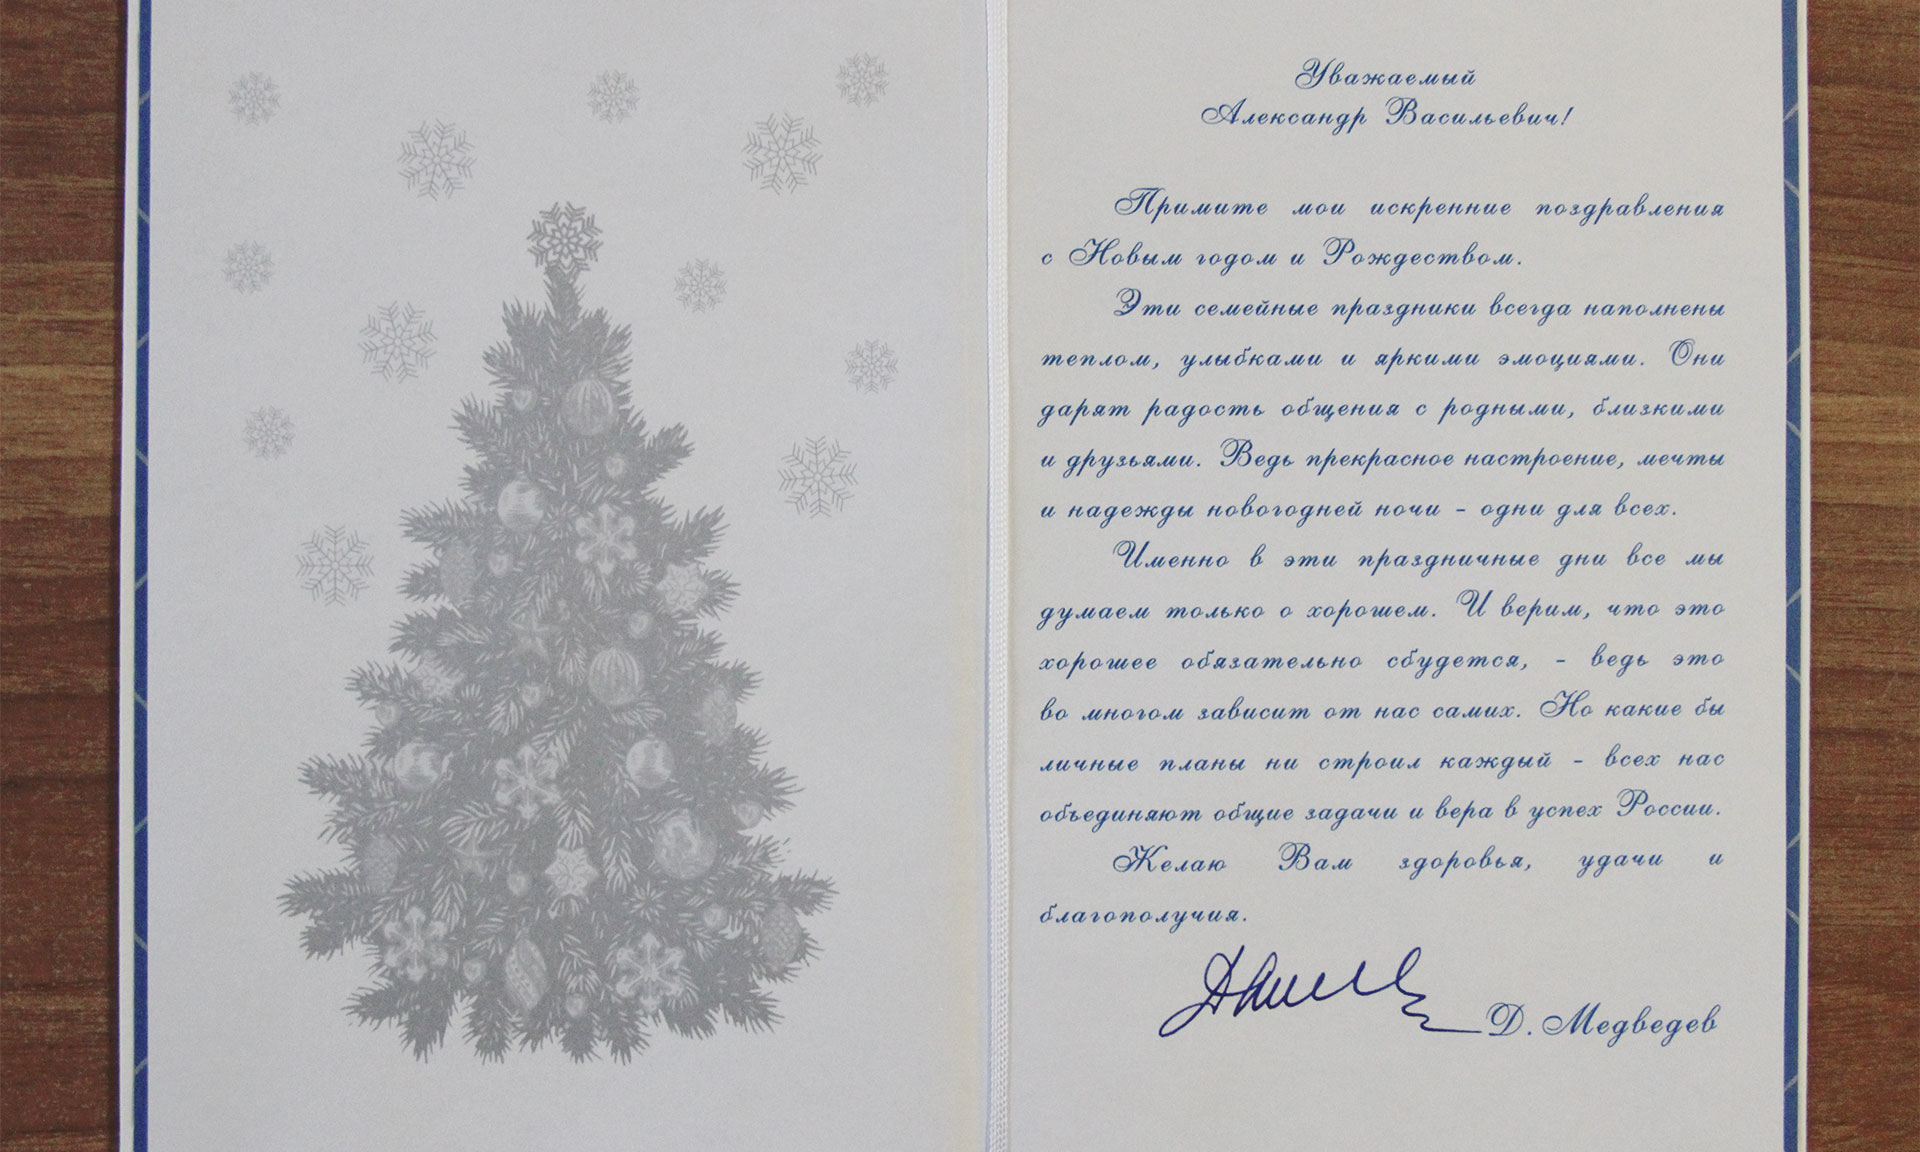 Уважаемый
Александр Васильевич!
Примите мои искренние поздравления
с Новым годом и Рождеством.
Эти семейные праздники всегда наполнены
теплом, улыбками и яркими эмоциями. Они
дарят радость общения с родными, близкими
и друзьями. Ведь прекрасное настроение, мечты
и надежды новогодней ночи - одни для всех.
Именно в эти праздничные дни все мы
думаем только о хорошем. И верим, что это
хорошее обязательно сбудется, - ведь это
во многом зависит от нас самих. Но какие бы
личные планы ни строил каждый - всех нас
объединяют общие задачи и вера в успех России.
Желаю Вам здоровья, удачи и
благополучия.
Д. Медведев